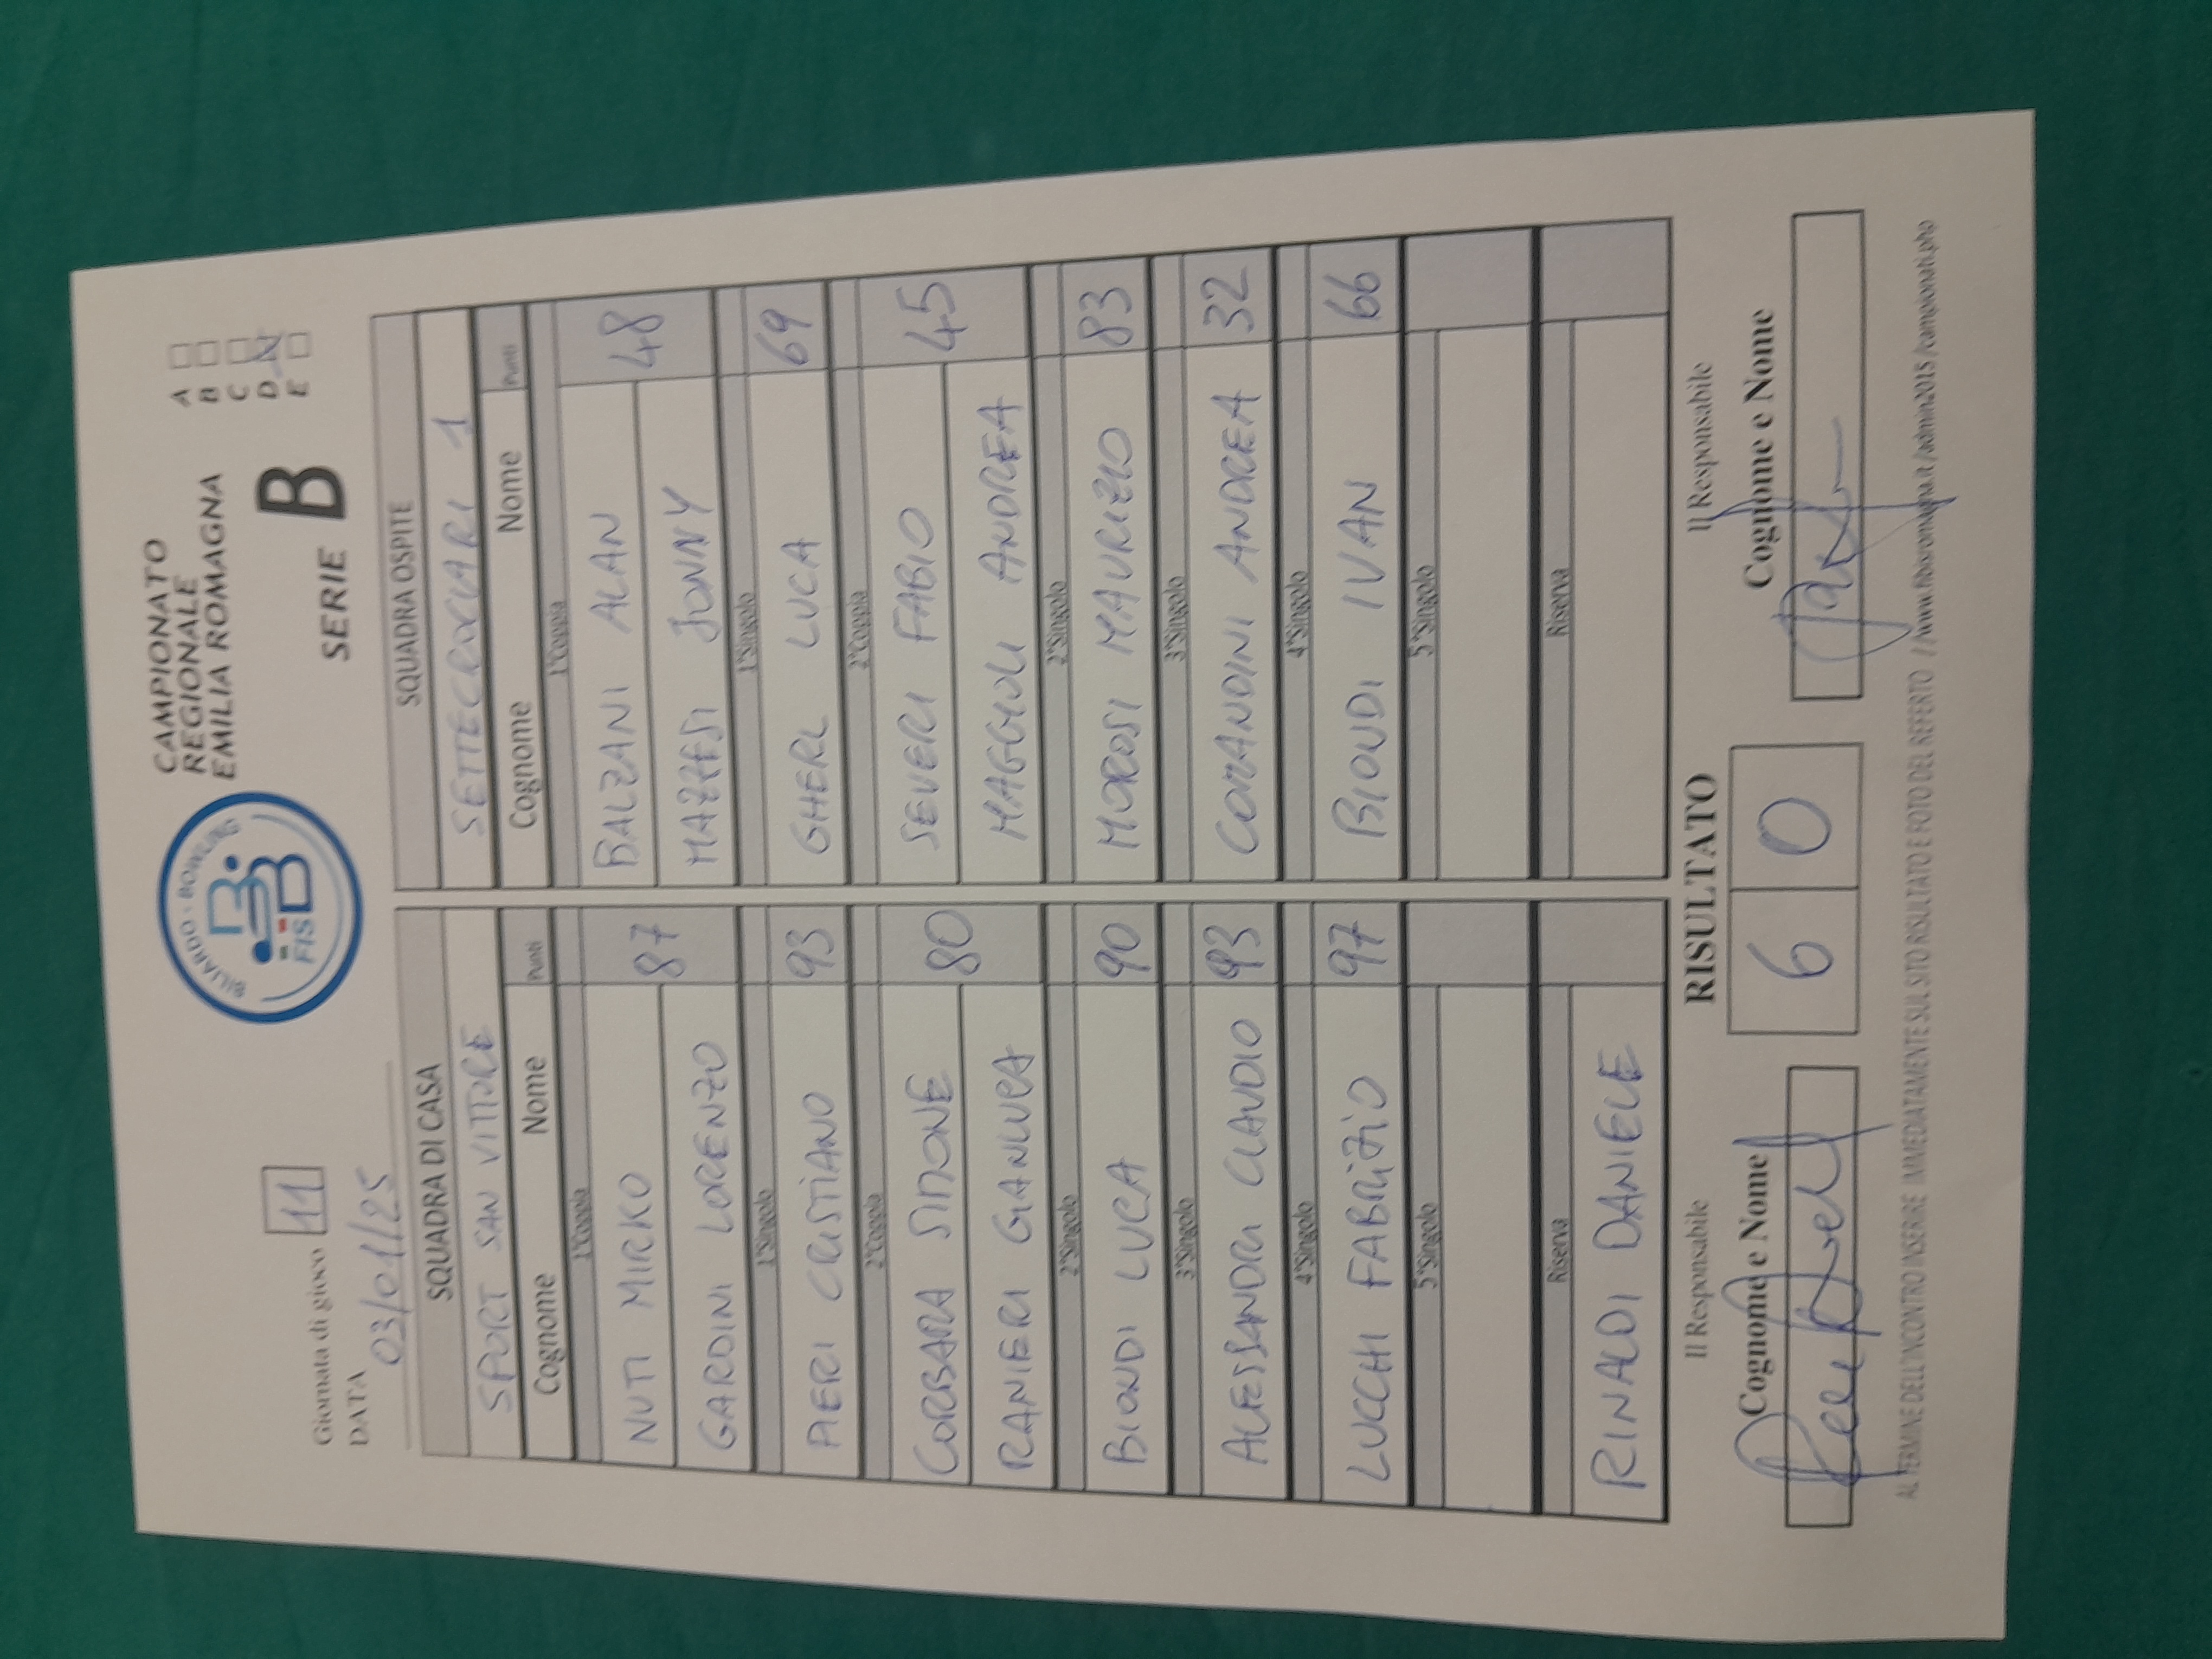 Giornata di gioco 11
DATA
03/01/25
BILIARDO · BOWLING
FISBB
CAMPIONATO
REGIONALE
EMILIA ROMAGNA
SERIE B
A
B
C
D X
E
SQUADRA DI CASA
SPORT SAN VITTORE
Cognome Nome Punti
1°Coppia
NUTI MIRKO 87
GARDINI LORENZO
1°Singolo
PIERI CRISTIANO 93
2°Coppia
CORBARA SIMONE 80
RANIERI GIANLUCA
2°Singolo
BIONDI LUCA 90
3°Singolo
ALESSANDRI CLAUDIO 93
4°Singolo
LUCCHI FABRIZIO 97
5°Singolo
Riserva
RINALDI DANIELE
SQUADRA OSPITE
SETTECROCIARI 1
Cognome Nome Punti
1°Coppia
BALZANI ALAN 48
MAZZESI JONNY
1°Singolo
GHERL LUCA 69
2°Coppia
SEVERI FABIO 45
MAGGIOLI ANDREA
2°Singolo
MOROSI MAURIZIO 83
3°Singolo
COMANDINI ANDREA 32
4°Singolo
BIONDI IVAN 66
5°Singolo
Riserva
Il Responsabile
Cognome e Nome
RISULTATO
6 0
Il Responsabile
Cognome e Nome
AL TERMINE DELL'INCONTRO INSERIRE IMMEDIATAMENTE SUL SITO RISULTATO E FOTO DEL REFERTO //www.fibisromagna.it/admin2015/campionati.php